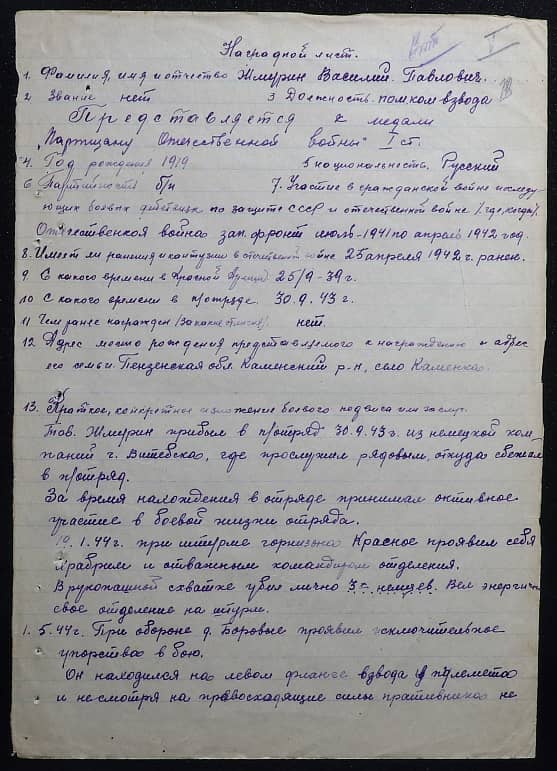 Наградной лист.
1. Фамилия, имя и отчество Жмурин Василий Павлович.
2 Звание нет 3 Должность. помком взвода
Представляется к медали
"Партизану Отечественной войны" I ст.
4. Год рождения 1919 5 национальность. Русский
6 Партийность б/п 7. Участие в гражданской войне и последу-
ющих боевых действиях по защите СССР и отечественной войне /где, когда/.
Отечественная война зап. фронт июль-1941 по апрель 1942 год.
8. Имеет ли ранения и контузии в отечественной войне 25 апреля 1942 г. ранен.
9 С какого времени в Красной Армии 25/9-39 г.
10 С какого времени в п/отряде. 30.9.43 г.
11 Чем ранее награжден /за какие отличия/. нет.
12 Адрес место рождения представляемого к награждению и адрес
его семьи. Пензенская обл. Каменский р-н, село Каменка.
13. Краткое, конкретное изложение боевого подвига или заслуг.
Тов. Жмурин прибыл в п/отряд 30.9.43 г. из немецкой ком-
паний г. Витебска, где прослужил рядовым, откуда сбежал
в п/отряд.
За время нахождения в отряде принимал активное
участие в боевой жизни отряда.
1.44 г. при штурме горнизона Красное проявил себя
храбрым и отважным командиром отделения.
В рукопашной схватке убил лично 3х немцев. Вел энергично
свое отделение на штурм.
1. 5.44 г. При обороне д. Боровые проявил исключительное
упорство в бою.
Он находился на левом фланге взвода у пулемета
и не смотря на превосходящие силы противника не